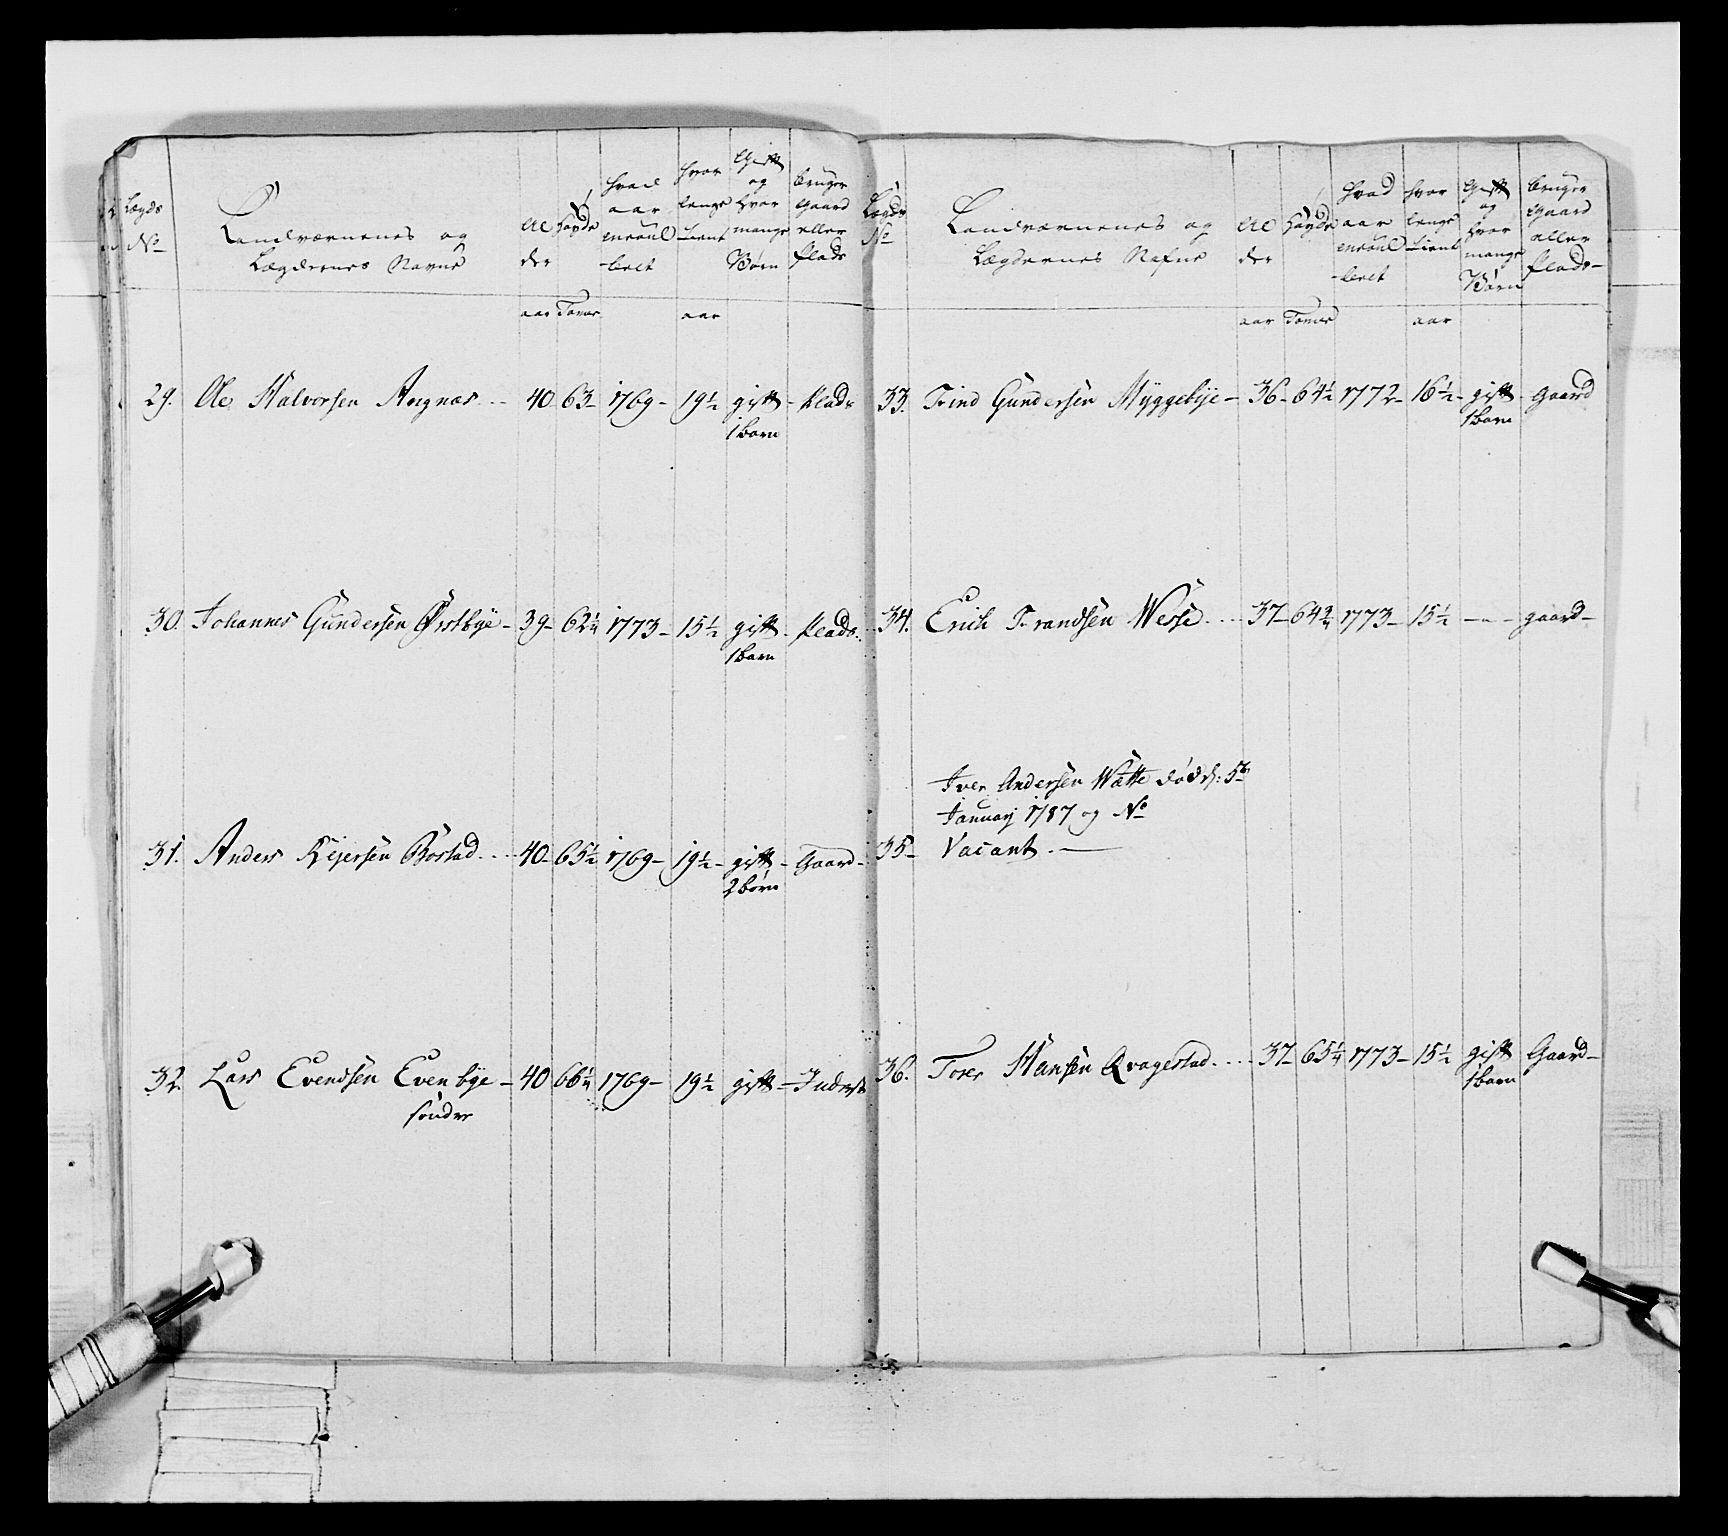 Lægds No
Landværnenes og Lægdernes Navne
Al der
Høyde
hvad aar enroul leret
hvor lenge tient
Gift og hvor mange Børn
bruger Gaard eller Plads
aar Tomer aar
29. Ole Halvorsen - 40 63 - 1769 - 19½ gift - Plads
1 barn
30. Johannes Gundersen Østbye - 39 - 62¼ 1773 - 15½ gift - Plads.
1 barn
31. Anders Bostad .... 40 - 65½ 1769 - 19½ - gift - Gaard -
2 børn
32. Lars Evendsen Evenbye - 40 66¼ 1769 - 19½ gift - Inderst
søndre
Lægds No
Landværnenes og Lægdernes Nafne
Al der
Høyde
hvad aar enroul leret
hvor lenge tient
Gift og hvor mange Børn
bruger Gaard eller Plads -
aar Tomer aar
33. Gundersen Myggebye - 36 - 64½ 1772 - 16½ - gift - Gaard
1 barn
34. Erich Trandsen .... 37 - 64¾ 1773 - 15½ - " - gaard -
Iver Andersen Wætte døde d: 5te
Januarj 1787 og No
35 - Vacant. -
36. Tores Hansen Qvagestad .... 37 - 65¼ 1773 - 15½ gift Gaard -
1 barn